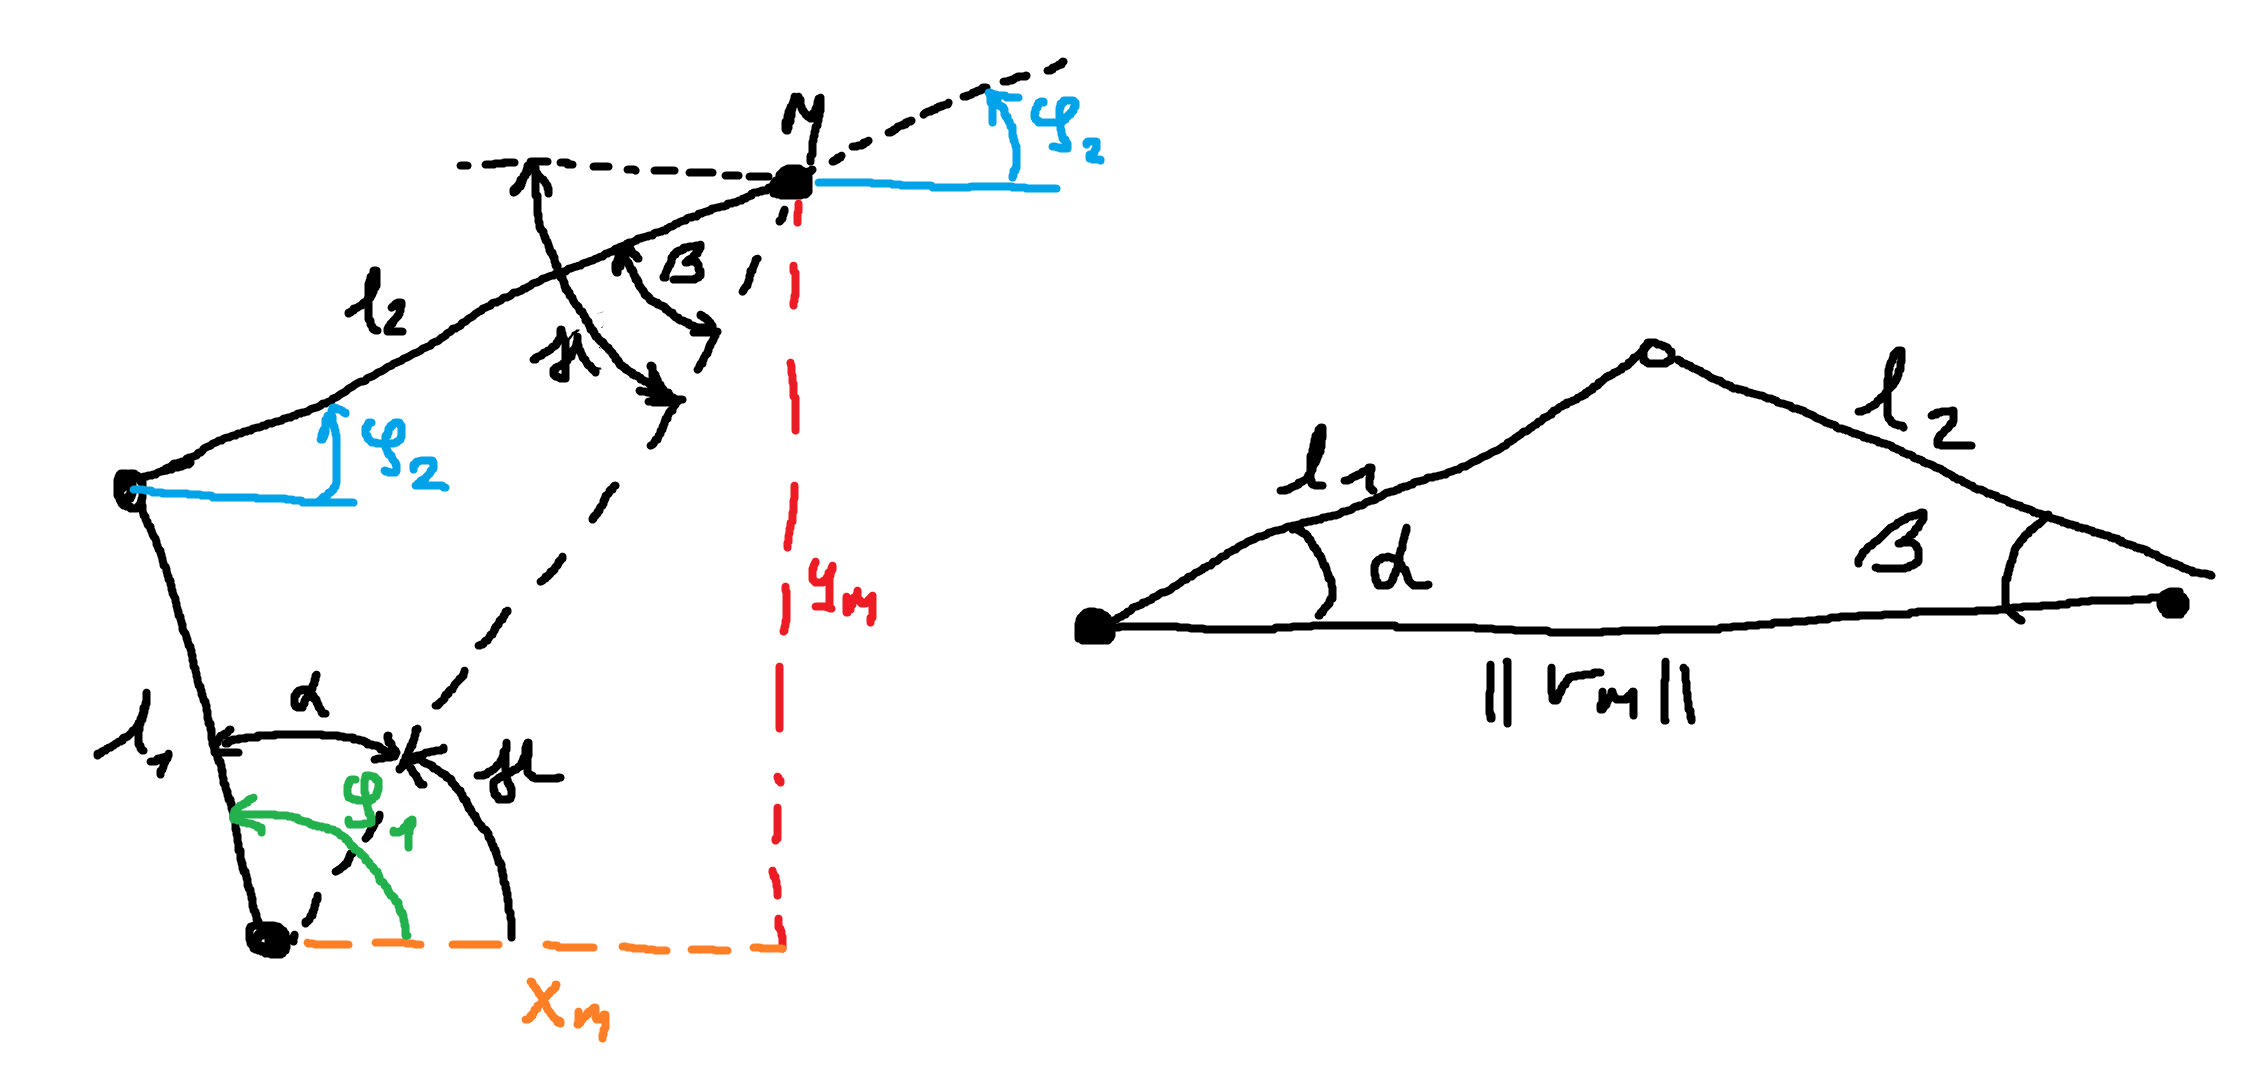 M
φ₂
β
l₂
φ₂
yₘ
α
l₁
φ₁
xₘ
l₂
l₁
α
β
||rₘ||